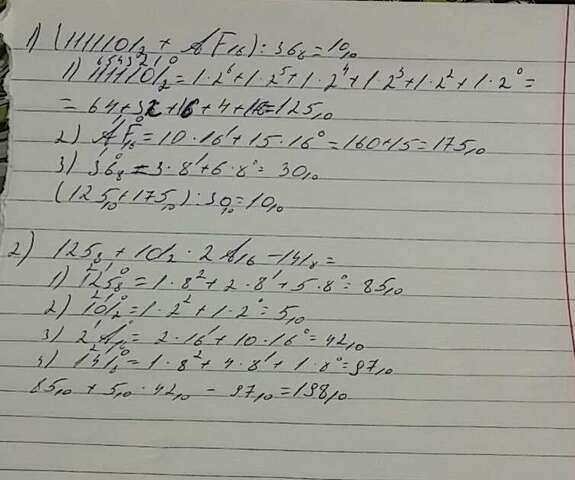 1) (1111101₂ + AF₁₆) : 36₈ = 10₁₀
1) 1111101₂ = 1·2⁶+1·2⁵+1·2⁴+1·2³+1·2²+1·2⁰=
= 64+32+16+4+1=125₁₀
2) A¹F⁰₁₆ = 10·16¹+15·16⁰=160+15=175₁₀
3) 3¹6⁰₈ = 3·8¹+6·8⁰= 30₁₀
(125₁₀+175₁₀):30₁₀=10₁₀
2) 125₈ + 101₂ · 2A₁₆ - 141₈ =
1) 1²2¹5⁰₈=1·8²+2·8¹+5·8⁰=85₁₀
2) 1²0¹1⁰₂=1·2²+1·2⁰=5₁₀
3) 2¹A⁰₁₆= 2·16¹+10·16⁰=42₁₀
4) 1²4¹1⁰₈=1·8²+4·8¹+1·8⁰=97₁₀
85₁₀ + 5₁₀ · 42₁₀ - 97₁₀=198₁₀